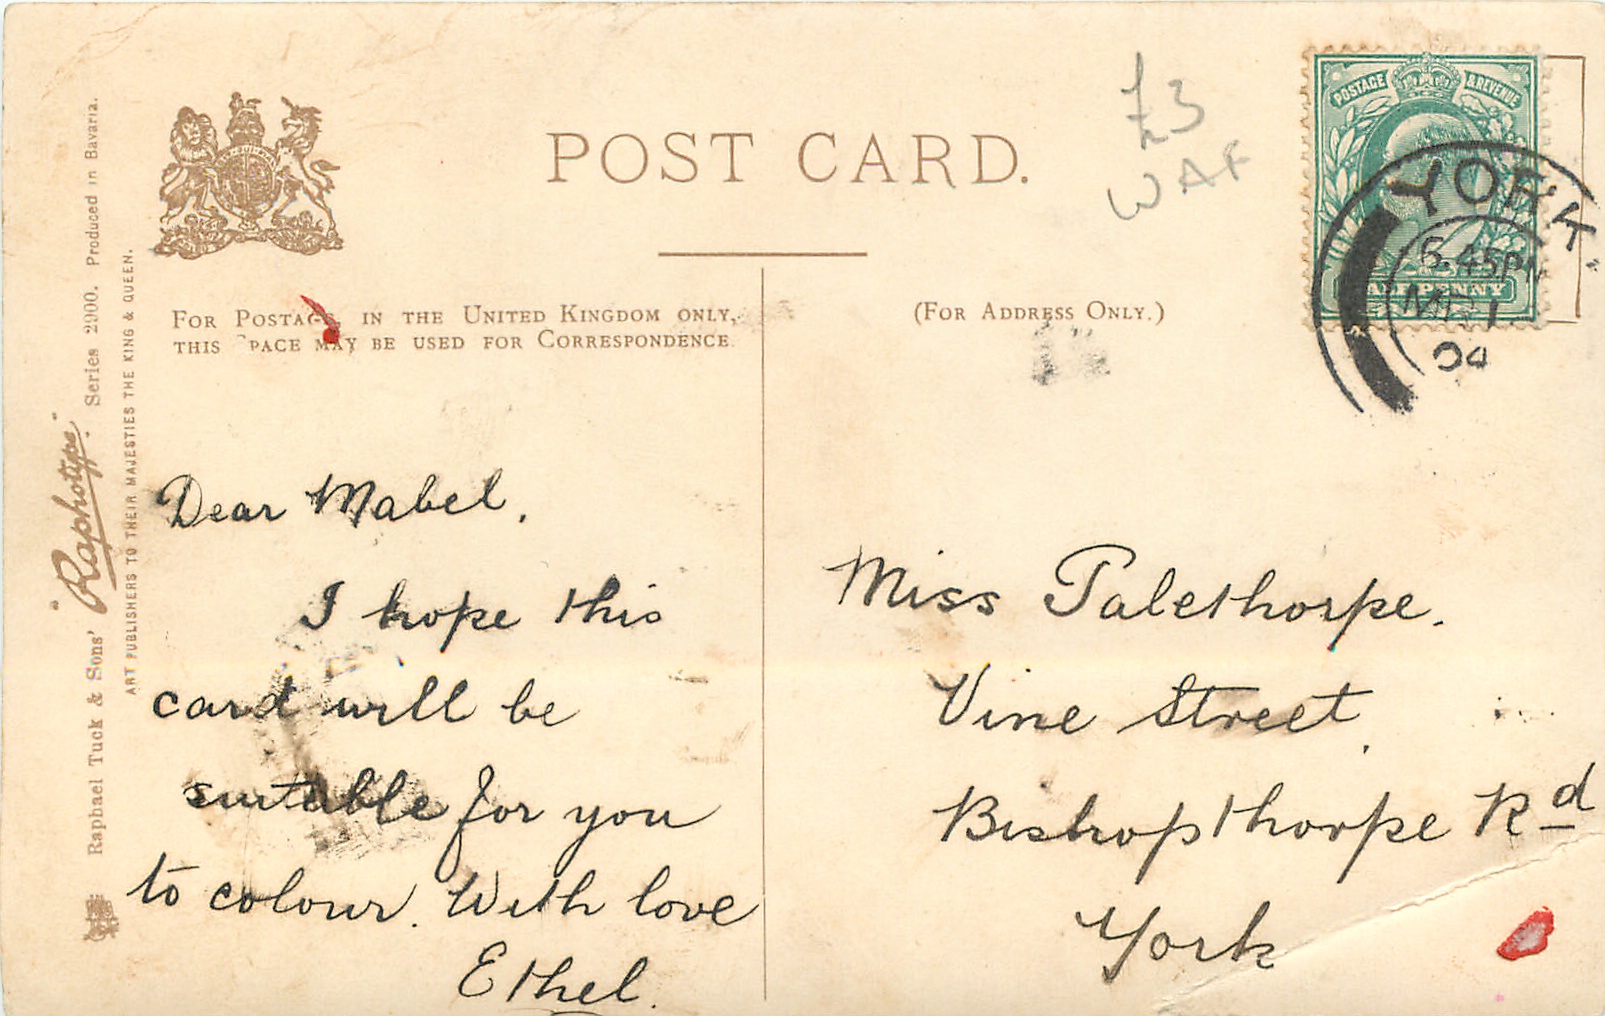 POST CARD.
£3
WAF
POSTAGE & REVENUE
HALFPENNY
YORK.
6.45PM
MR 1
04
FOR POSTAGE IN THE UNITED KINGDOM ONLY,
THIS SPACE MAY BE USED FOR CORRESPONDENCE.
(FOR ADDRESS ONLY.)
Raphael Tuck & Sons' "Raphotype" Series 2900. Produced in Bavaria.
ART PUBLISHERS TO THEIR MAJESTIES THE KING & QUEEN.
Dear Mabel,
I hope this
card will be
suitable for you
to colour. With love
Ethel.
Miss Palethorpe.
Vine Street,
Bishopthorpe Rd
York